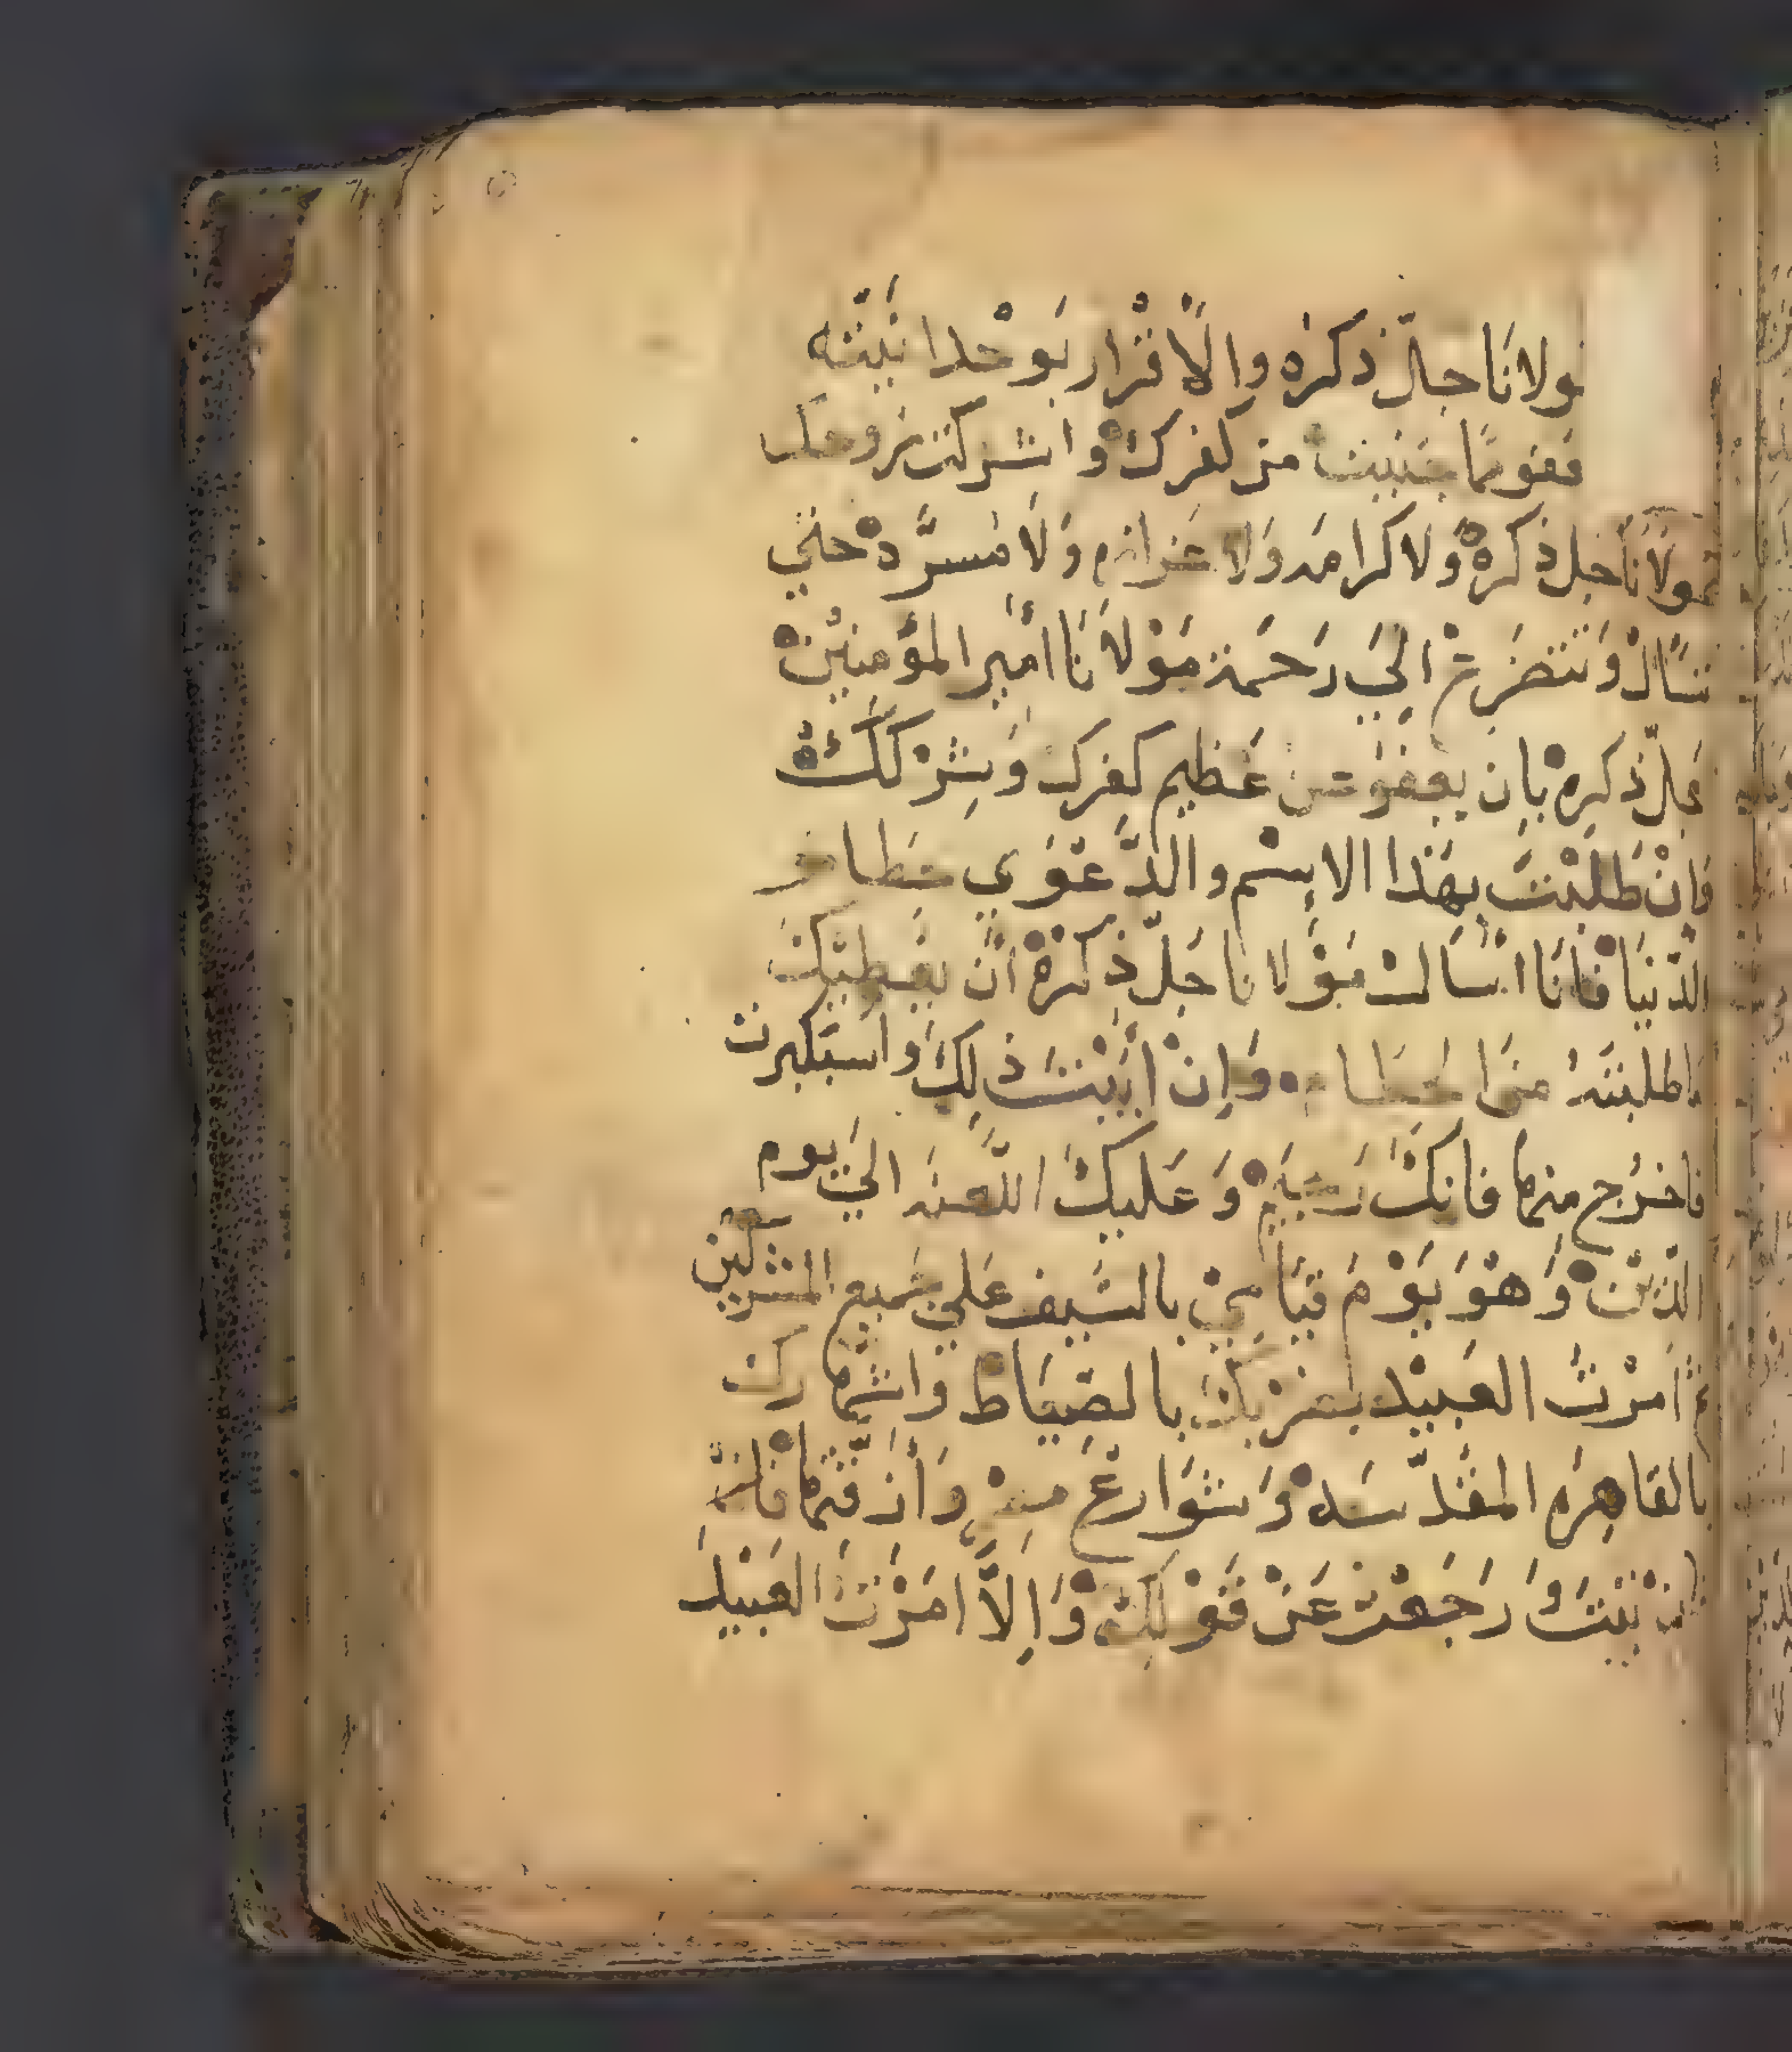 مولانا جلّ ذكره والاقرار بوحدانيته
من كفرك واشركت بروحك
بمولانا جل ذكره ولا كرامه ولا ولا مسرّه حتي
تسال وتتضرع الي رحمة مولانا امير المؤمنين
جلّ ذكره بان يعفو عن عظيم كفرك وشركك
فان طلبت بهذا الاسم والدّعوي حطام
الدّنيا فانا اسالت مولانا جلّ ذكره ان يعطيك
ماطلبته من الحطام وان ابيت ذلك واستكبرت
فاخرج منها فانك رجيم وعليك اللّعنه الي يوم
الدّين وهو يوم قيامي بالسّيف علي جميع المشركين
ثم امرت العبيد بضربك بالصياط واشهارك
بالقاهره المقدّسه وشوارع
تبت ورجعت عن قولك والاّ امرت العبيد